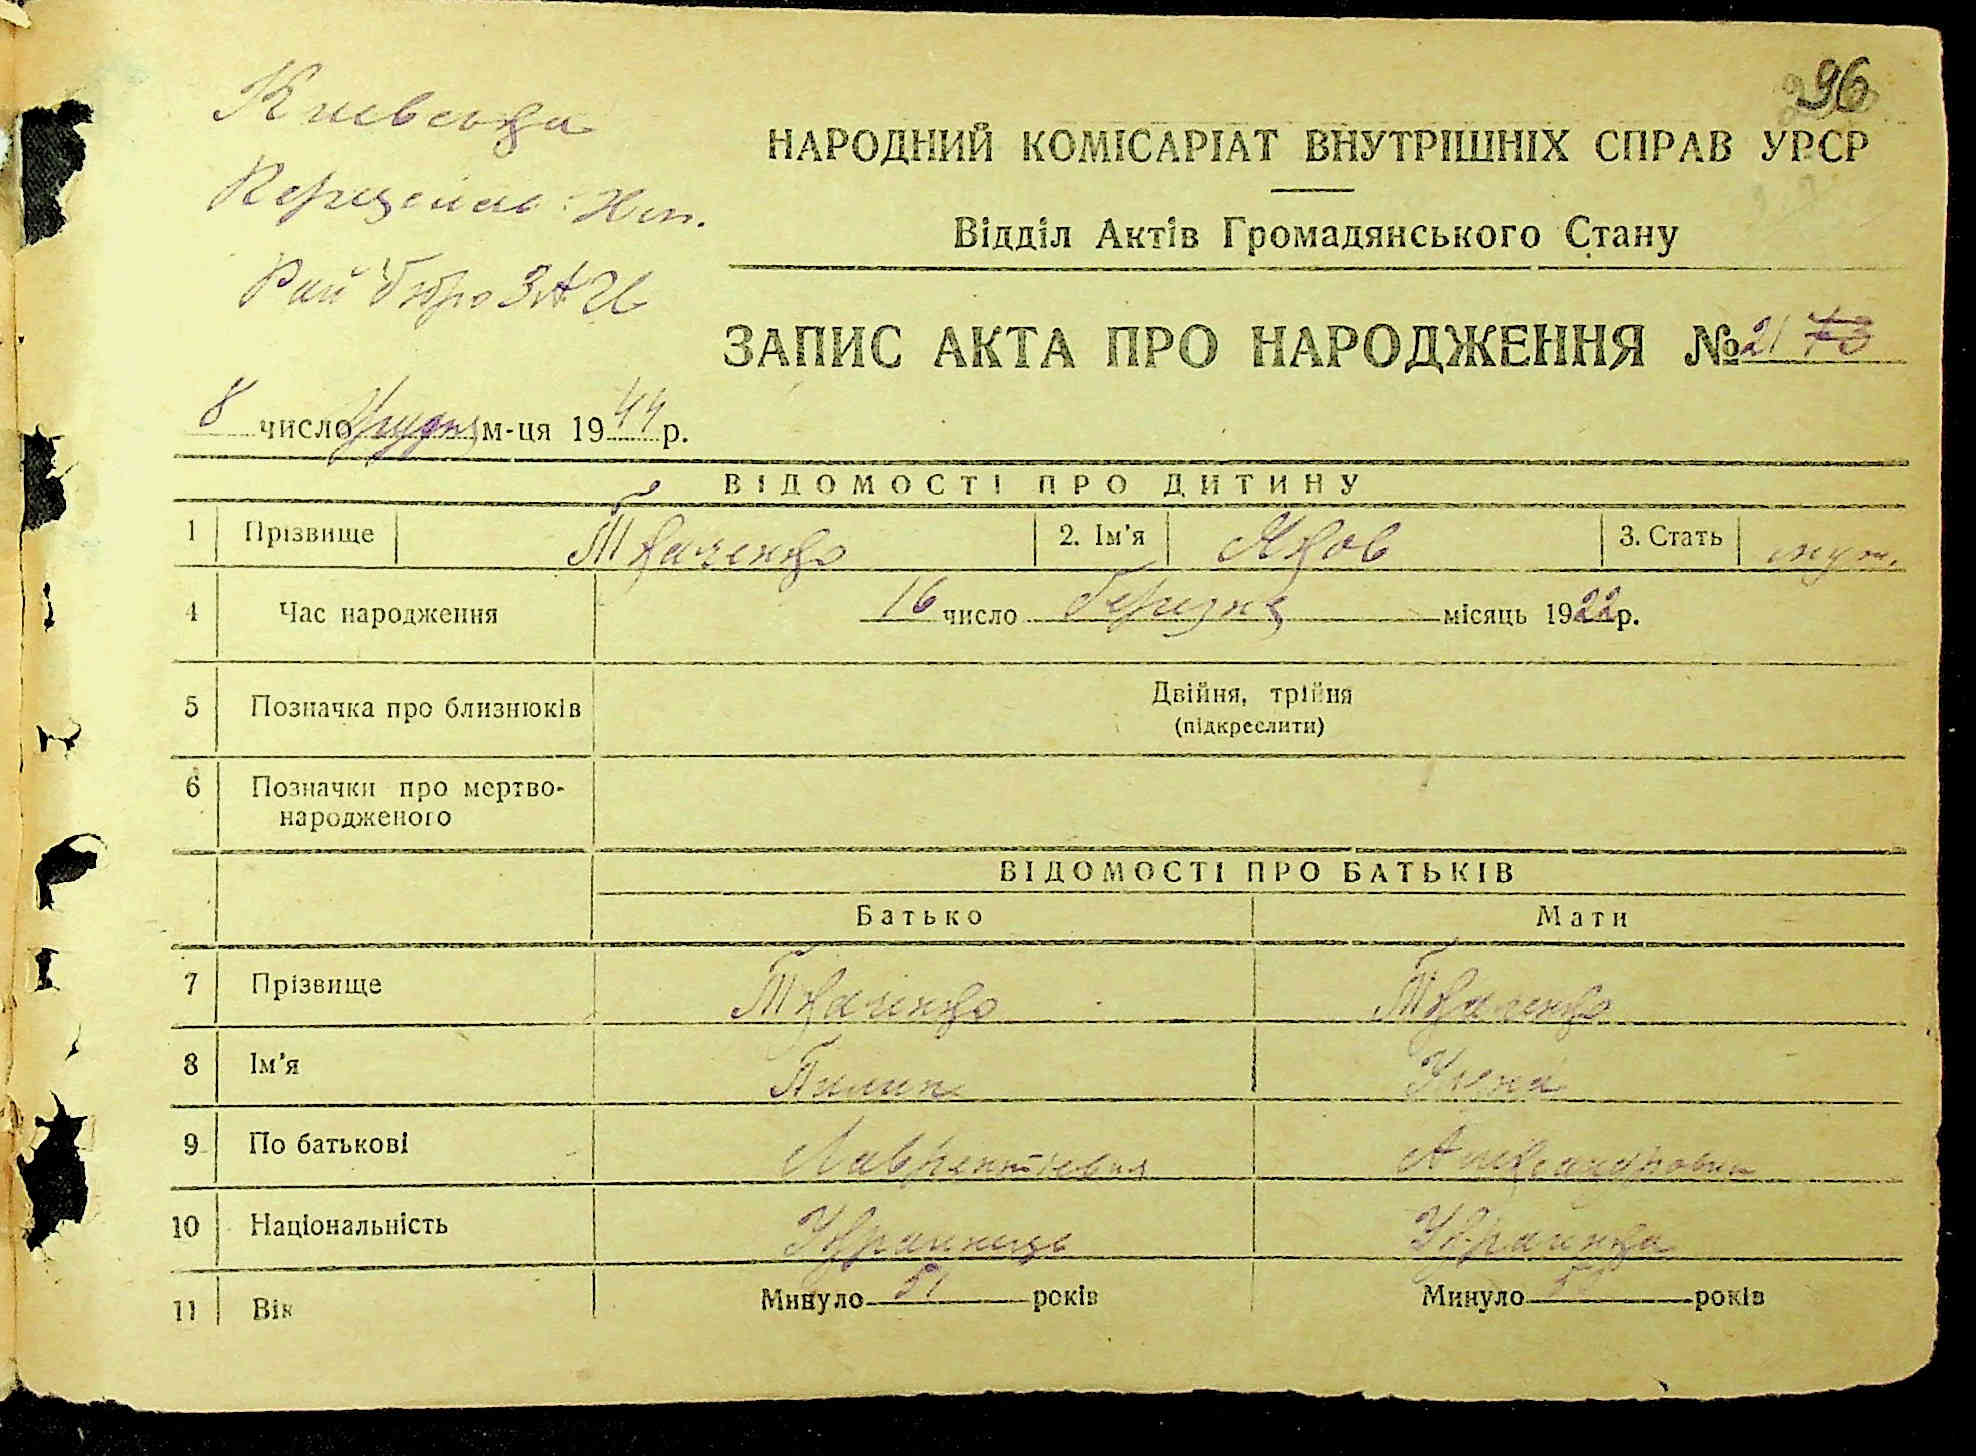 96
Київська
НАРОДНИЙ КОМІСАРІАТ ВНУТРІШНІХ СПРАВ УРСР
Відділ Актів Громадянського Стану
Рай бюро ЗАГС
ЗАПИС АКТА ПРО НАРОДЖЕННЯ № 21 73
8 число Грудня м-ця 1944 р.
ВІДОМОСТІ ПРО ДИТИНУ
1 Прізвище Ткаченко 2. Ім'я Яков 3. Стать муж.
4 Час народження 16 число Березня місяць 1922 р.
5 Позначка про близнюків Двійня, трійня
(підкреслити)
6 Позначки про мертво-
народженого
ВІДОМОСТІ ПРО БАТЬКІВ
Батько Мати
7 Прізвище Ткаченко Ткаченко
8 Ім'я Пилип Уляна
9 По батькові Лаврентієвич Александровна
10 Національність Українець Українка
11 Вік Минуло 51 років Минуло років